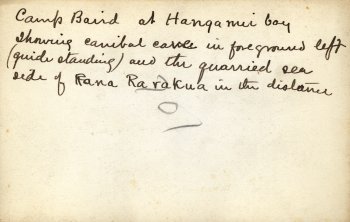 Camp Baird at Hangamui bay
showing canibal cave in foreground left
(guide standing) and the quarried sea
side of Rana Rarakua in the distance